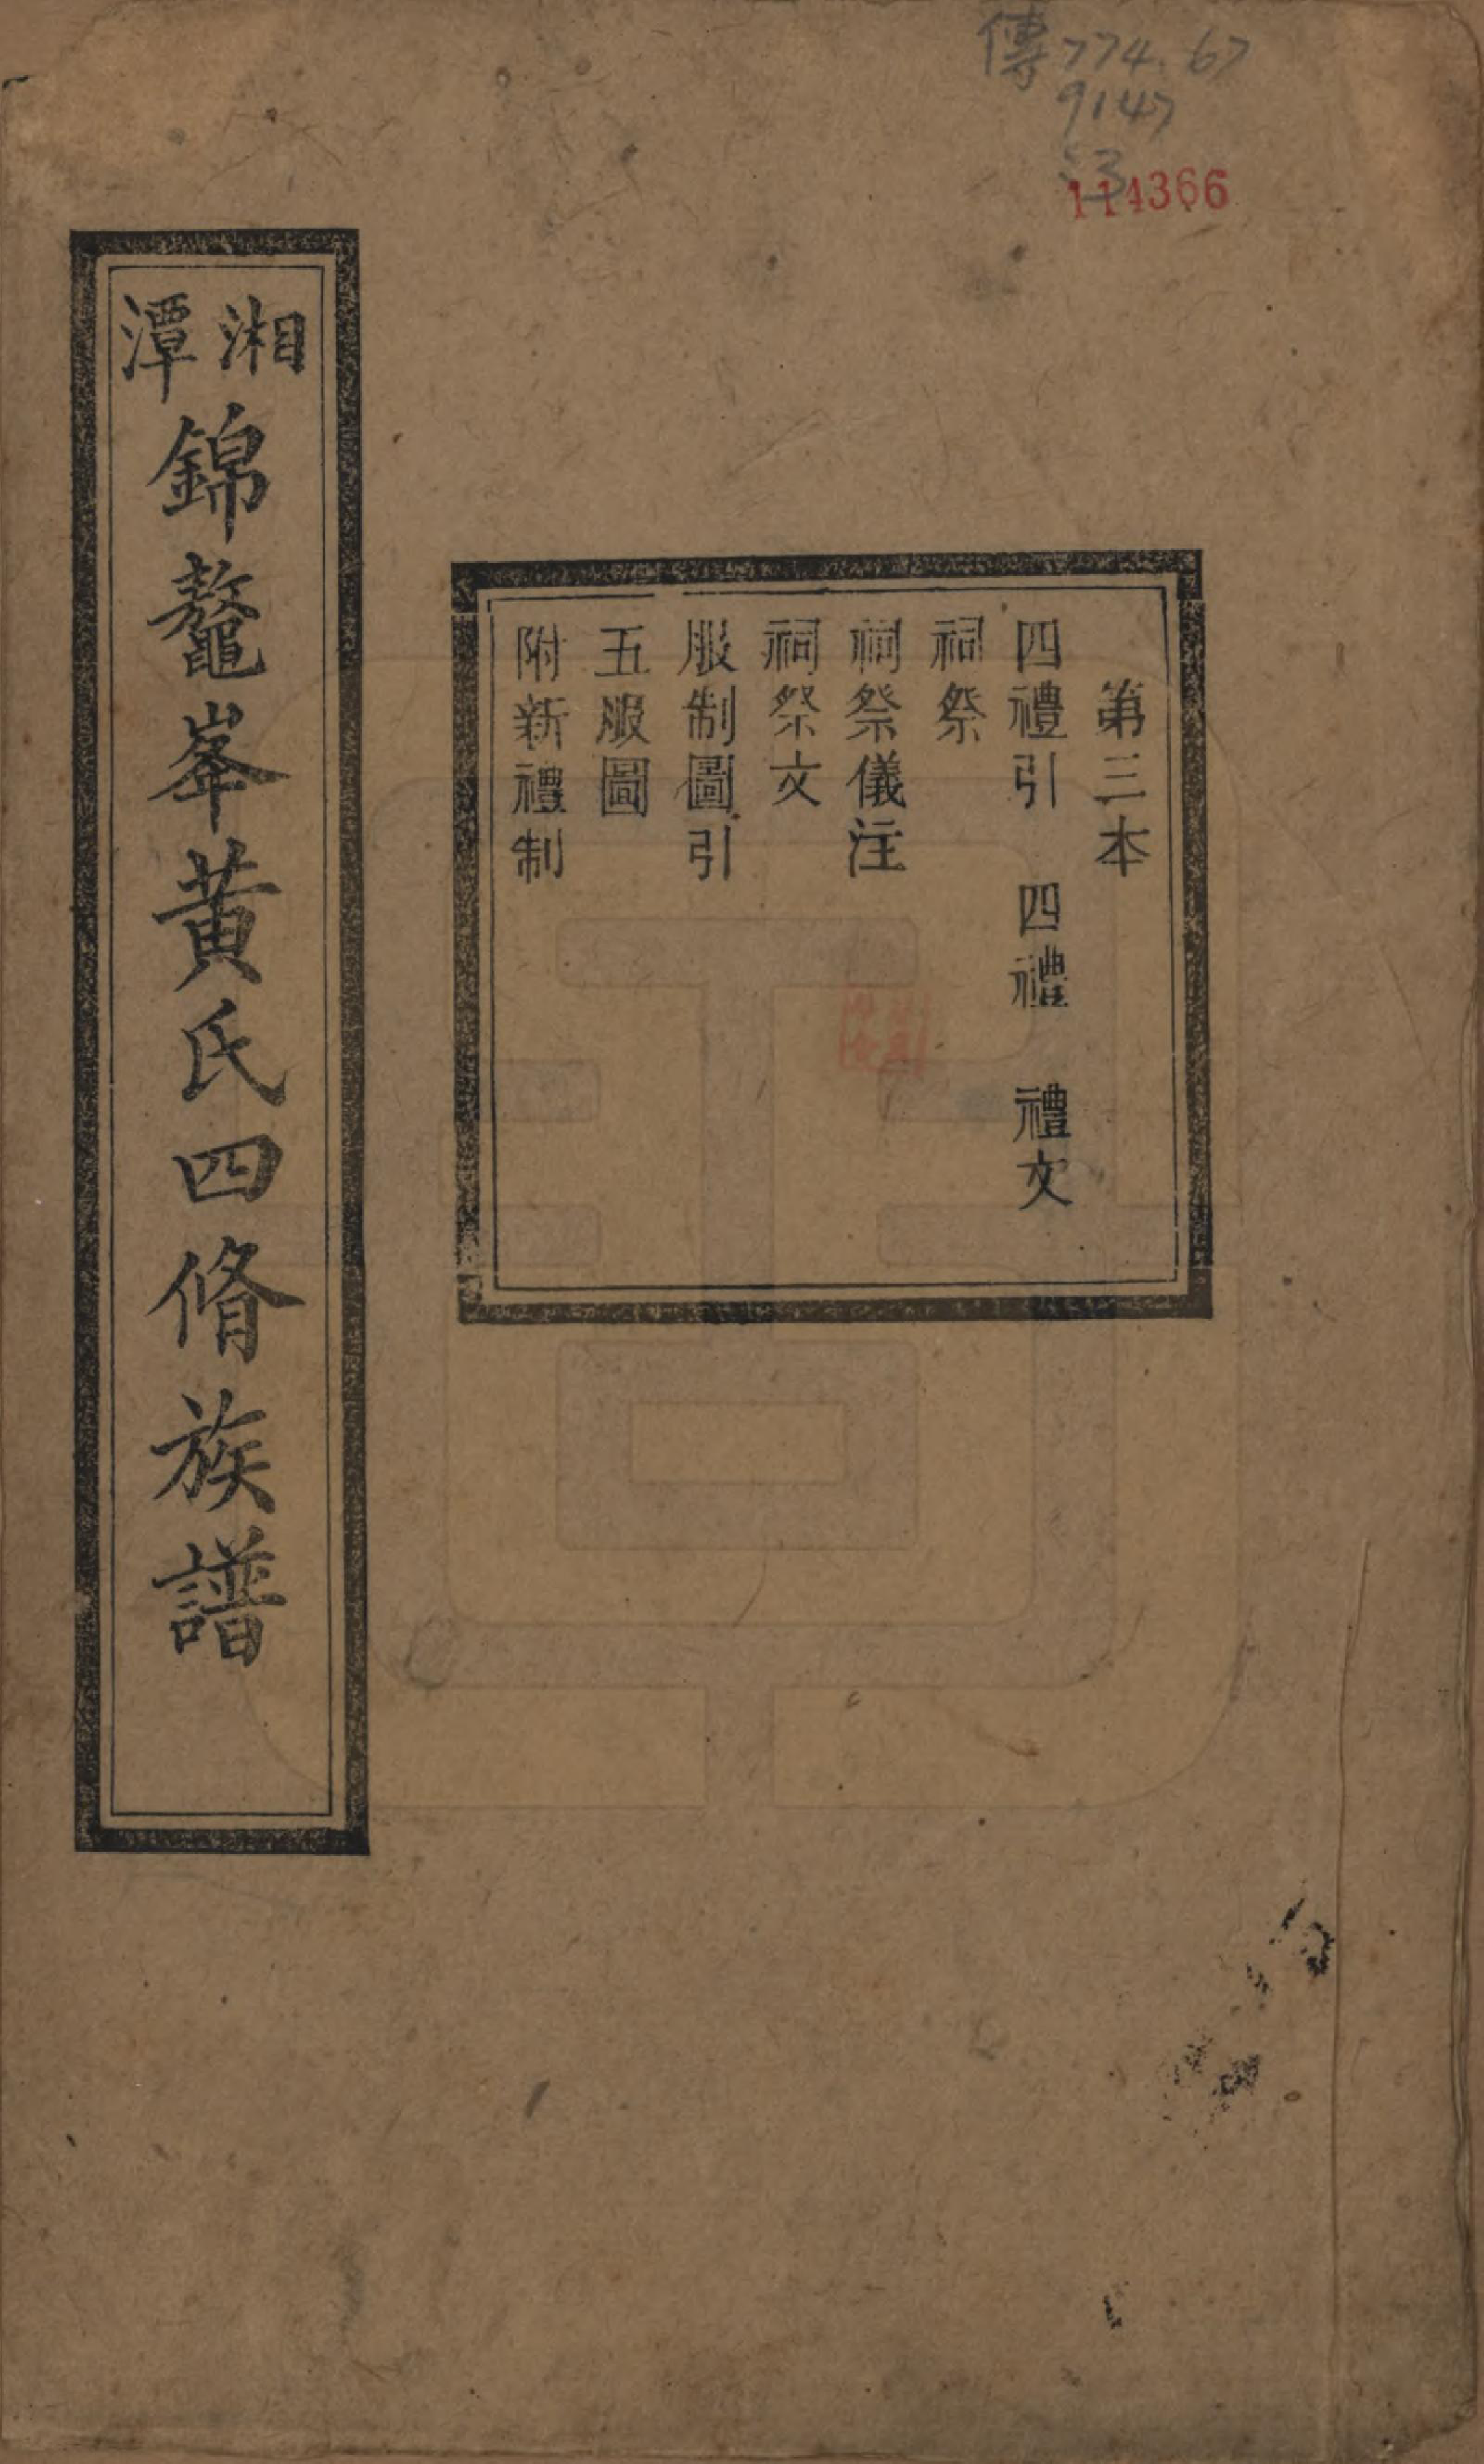 傳774.67
9147
:3
114366
第三本
四禮引　四禮　禮文
祠祭
祠祭儀注
祠祭文
服制圖引
五服圖
附新禮制
湘潭錦鼇峯黃氏四脩族譜